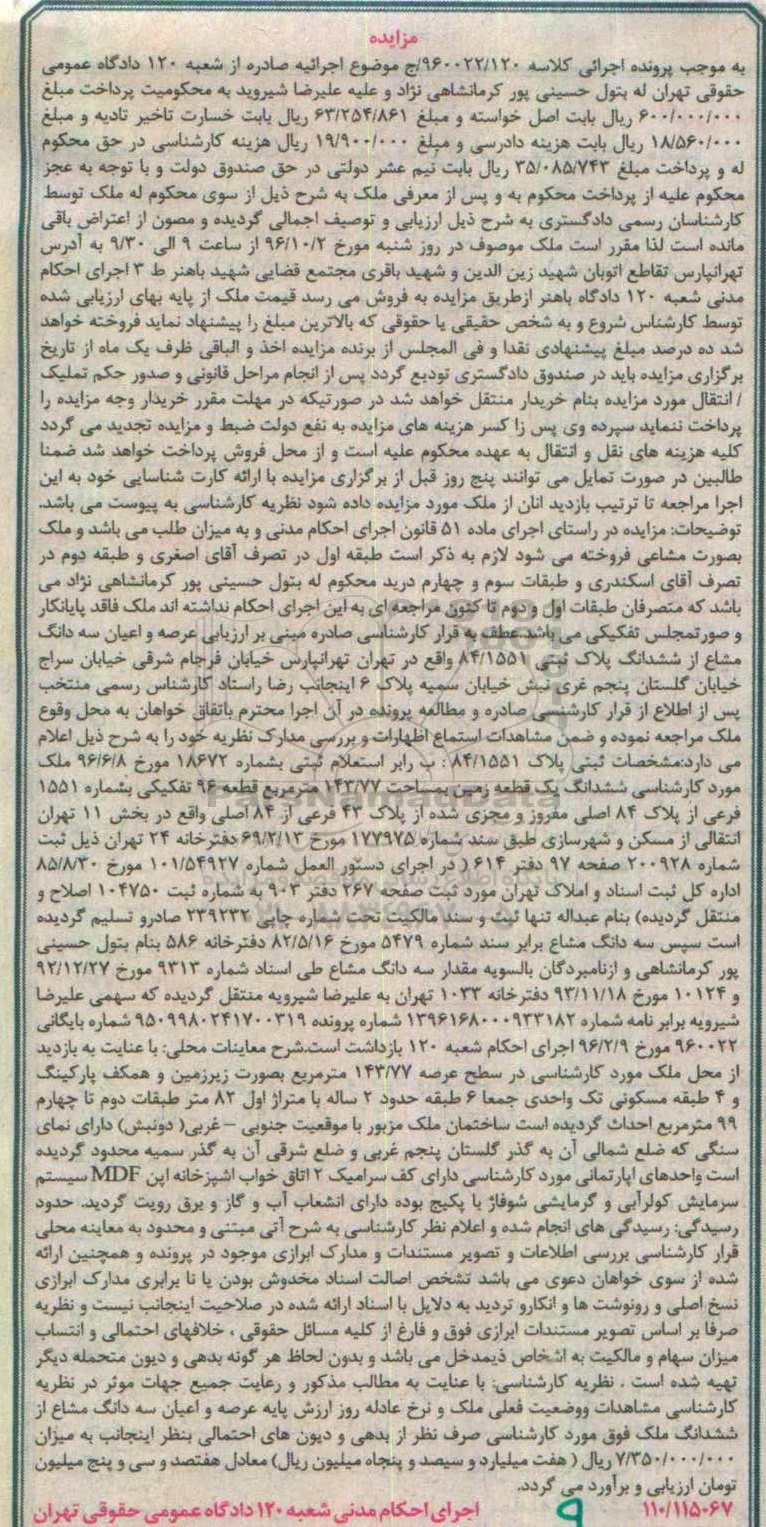 مزایده
به موجب پرونده اجرائی کلاسه ۹۶۰۰۲۲/۱۲۰/ج موضوع اجرائیه صادره از شعبه ۱۲۰ دادگاه عمومی
حقوقی تهران له بتول حسینی پور کرمانشاهی نژاد و علیه علیرضا شیروید به محکومیت پرداخت مبلغ
۶۰۰/۰۰۰/۰۰۰ ریال بابت اصل خواسته و مبلغ ۶۳/۲۵۴/۸۶۱ ریال بابت خسارت تاخیر تادیه و مبلغ
۱۸/۵۶۰/۰۰۰ ریال بابت هزینه دادرسی و مبلغ ۱۹/۹۰۰/۰۰۰ ریال هزینه کارشناسی در حق محکوم
له و پرداخت مبلغ ۳۵/۰۸۵/۷۴۳ ریال بابت نیم عشر دولتی در حق صندوق دولت و با توجه به عجز
محکوم علیه از پرداخت محکوم به و پس از معرفی ملک به شرح ذیل از سوی محکوم له ملک توسط
کارشناسان رسمی دادگستری به شرح ذیل ارزیابی و توصیف اجمالی گردیده و مصون از اعتراض باقی
مانده است لذا مقرر است ملک موصوف در روز شنبه مورخ ۹۶/۱۰/۲ از ساعت ۹ الی ۹/۳۰ به آدرس
تهرانپارس تقاطع اتوبان شهید زین الدین و شهید باقری مجتمع قضایی شهید باهنر ط ۳ اجرای احکام
مدنی شعبه ۱۲۰ دادگاه باهنر ازطریق مزایده به فروش می رسد قیمت ملک از پایه بهای ارزیابی شده
توسط کارشناس شروع و به شخص حقیقی یا حقوقی که بالاترین مبلغ را پیشنهاد نماید فروخته خواهد
شد ده درصد مبلغ پیشنهادی نقدا و فی المجلس از برنده مزایده اخذ و الباقی ظرف یک ماه از تاریخ
برگزاری مزایده باید در صندوق دادگستری تودیع گردد پس از انجام مراحل قانونی و صدور حکم تملیک
/ انتقال مورد مزایده بنام خریدار منتقل خواهد شد در صورتیکه در مهلت مقرر خریدار وجه مزایده را
پرداخت ننماید سپرده وی پس زا کسر هزینه های مزایده به نفع دولت ضبط و مزایده تجدید می گردد
کلیه هزینه های نقل و انتقال به عهده محکوم علیه است و از محل فروش پرداخت خواهد شد ضمنا
طالبین در صورت تمایل می توانند پنج روز قبل از برگزاری مزایده با ارائه کارت شناسایی خود به این
اجرا مراجعه تا ترتیب بازدید انان از ملک مورد مزایده داده شود نظریه کارشناسی به پیوست می باشد.
توضیحات: مزایده در راستای اجرای ماده ۵۱ قانون اجرای احکام مدنی و به میزان طلب می باشد و ملک
بصورت مشاعی فروخته می شود لازم به ذکر است طبقه اول در تصرف آقای اصغری و طبقه دوم در
تصرف آقای اسکندری و طبقات سوم و چهارم درید محکوم له بتول حسینی پور کرمانشاهی نژاد می
باشد که متصرفان طبقات اول و دوم تا کنون مراجعه ای به این اجرای احکام نداشته اند ملک فاقد پایانکار
و صورتمجلس تفکیکی می باشد.عطف به قرار کارشناسی صادره مبنی بر ارزیابی عرصه و اعیان سه دانگ
مشاع از ششدانگ پلاک ثبتی ۸۴/۱۵۵۱ واقع در تهران تهرانپارس خیابان فرجام شرقی خیابان سراج
خیابان گلستان پنجم غری نبش خیابان سمیه پلاک ۶ اینجانب رضا راستاد کارشناس رسمی منتخب
پس از اطلاع از قرار کارشنسی صادره و مطالعه پرونده در آن اجرا محترم باتفاق خواهان به محل وقوع
ملک مراجعه نموده و ضمن مشاهدات استماع اظهارات و بررسی مدارک نظریه خود را به شرح ذیل اعلام
می دارد:مشخصات ثبتی پلاک ۸۴/۱۵۵۱ : ب رابر استعلام ثبتی بشماره ۱۸۶۷۲ مورخ ۹۶/۶/۸ ملک
مورد کارشناسی ششدانگ یک قطعه زمین بمساحت ۱۴۳/۷۷ مترمربع قطعه ۹۶ تفکیکی بشماره ۱۵۵۱
فرعی از پلاک ۸۴ اصلی مفروز و مجزی شده از پلاک ۴۲ فرعی از ۸۴ اصلی واقع در بخش ۱۱ تهران
انتقالی از مسکن و شهرسازی طبق سند شماره ۱۷۷۹۷۵ مورخ ۶۹/۲/۱۳ دفترخانه ۲۴ تهران ذیل ثبت
شماره ۲۰۰۹۲۸ صفحه ۹۷ دفتر ۶۱۴ ( در اجرای دستور العمل شماره ۱۰۱/۵۴۹۲۷ مورخ ۸۵/۸/۳۰
اداره کل ثبت اسناد و املاک تهران مورد ثبت صفحه ۲۶۷ دفتر ۹۰۳ به شماره ثبت ۱۰۴۷۵۰ اصلاح و
منتقل گردیده) بنام عبداله تنها ثبت و سند مالکیت تحت شماره چاپی ۲۳۹۲۳۲ صادرو تسلیم گردیده
است سپس سه دانگ مشاع برابر سند شماره ۵۴۷۹ مورخ ۸۲/۵/۱۶ دفترخانه ۵۸۶ بنام بتول حسینی
پور کرمانشاهی و ازنامبردگان بالسویه مقدار سه دانگ مشاع طی اسناد شماره ۹۳۱۳ مورخ ۹۲/۱۲/۲۷
و ۱۰۱۲۴ مورخ ۹۳/۱۱/۱۸ دفترخانه ۱۰۳۳ تهران به علیرضا شیرویه منتقل گردیده که سهمی علیرضا
شیرویه برابر نامه شماره ۱۳۹۶۱۶۸۰۰۰۹۳۳۱۸۲ شماره پرونده ۹۵۰۹۹۸۰۲۴۱۷۰۰۳۱۹ شماره بایگانی
۹۶۰۰۲۲ مورخ ۹۶/۲/۹ اجرای احکام شعبه ۱۲۰ بازداشت است.شرح معاینات محلی: با عنایت به بازدید
از محل ملک مورد کارشناسی در سطح عرصه ۱۴۳/۷۷ مترمربع بصورت زیرزمین و همکف پارکینگ
و ۴ طبقه مسکونی تک واحدی جمعا ۶ طبقه حدود ۲ ساله با متراژ اول ۸۲ متر طبقات دوم تا چهارم
۹۹ مترمربع احداث گردیده است ساختمان ملک مزبور با موقعیت جنوبی – غربی( دونبش) دارای نمای
سنگی که ضلع شمالی آن به گذر گلستان پنجم غربی و ضلع شرقی آن به گذر سمیه محدود گردیده
است واحدهای اپارتمانی مورد کارشناسی دارای کف سرامیک ۲ اتاق خواب اشپزخانه اپن MDF سیستم
سرمایش کولرآبی و گرمایشی شوفاژ یا پکیج بوده دارای انشعاب آب و گاز و برق رویت گردید. حدود
رسیدگی: رسیدگی های انجام شده و اعلام نظر کارشناسی به شرح آتی مبتنی و محدود به معاینه محلی
قرار کارشناسی بررسی اطلاعات و تصویر مستندات و مدارک ابرازی موجود در پرونده و همچنین ارائه
شده از سوی خواهان دعوی می باشد تشخص اصالت اسناد مخدوش بودن یا نا برابری مدارک ابرازی
نسخ اصلی و رونوشت ها و انکارو تردید به دلایل با اسناد ارائه شده در صلاحیت اینجانب نیست و نظریه
صرفا بر اساس تصویر مستندات ابرازی فوق و فارغ از کلیه مسائل حقوقی ، خلافهای احتمالی و انتساب
میزان سهام و مالکیت به اشخاص ذیمدخل می باشد و بدون لحاظ هر گونه بدهی و دیون متحمله دیگر
تهیه شده است . نظریه کارشناسی: با عنایت به مطالب مذکور و رعایت جمیع جهات موثر در نظریه
کارشناسی مشاهدات ووضعیت فعلی ملک و نرخ عادله روز ارزش پایه عرصه و اعیان سه دانگ مشاع از
ششدانگ ملک فوق مورد کارشناسی صرف نظر از بدهی و دیون های احتمالی بنظر اینجانب به میزان
۷/۳۵۰/۰۰۰/۰۰۰ ریال ( هفت میلیارد و سیصد و پنجاه میلیون ریال) معادل هفتصد و سی و پنج میلیون
تومان ارزیابی و برآورد می گردد.
۱۱۰/۱۱۵۰۶۷ اجرای احکام مدنی شعبه ۱۲۰ دادگاه عمومی حقوقی تهران
۹
ParsNamadData